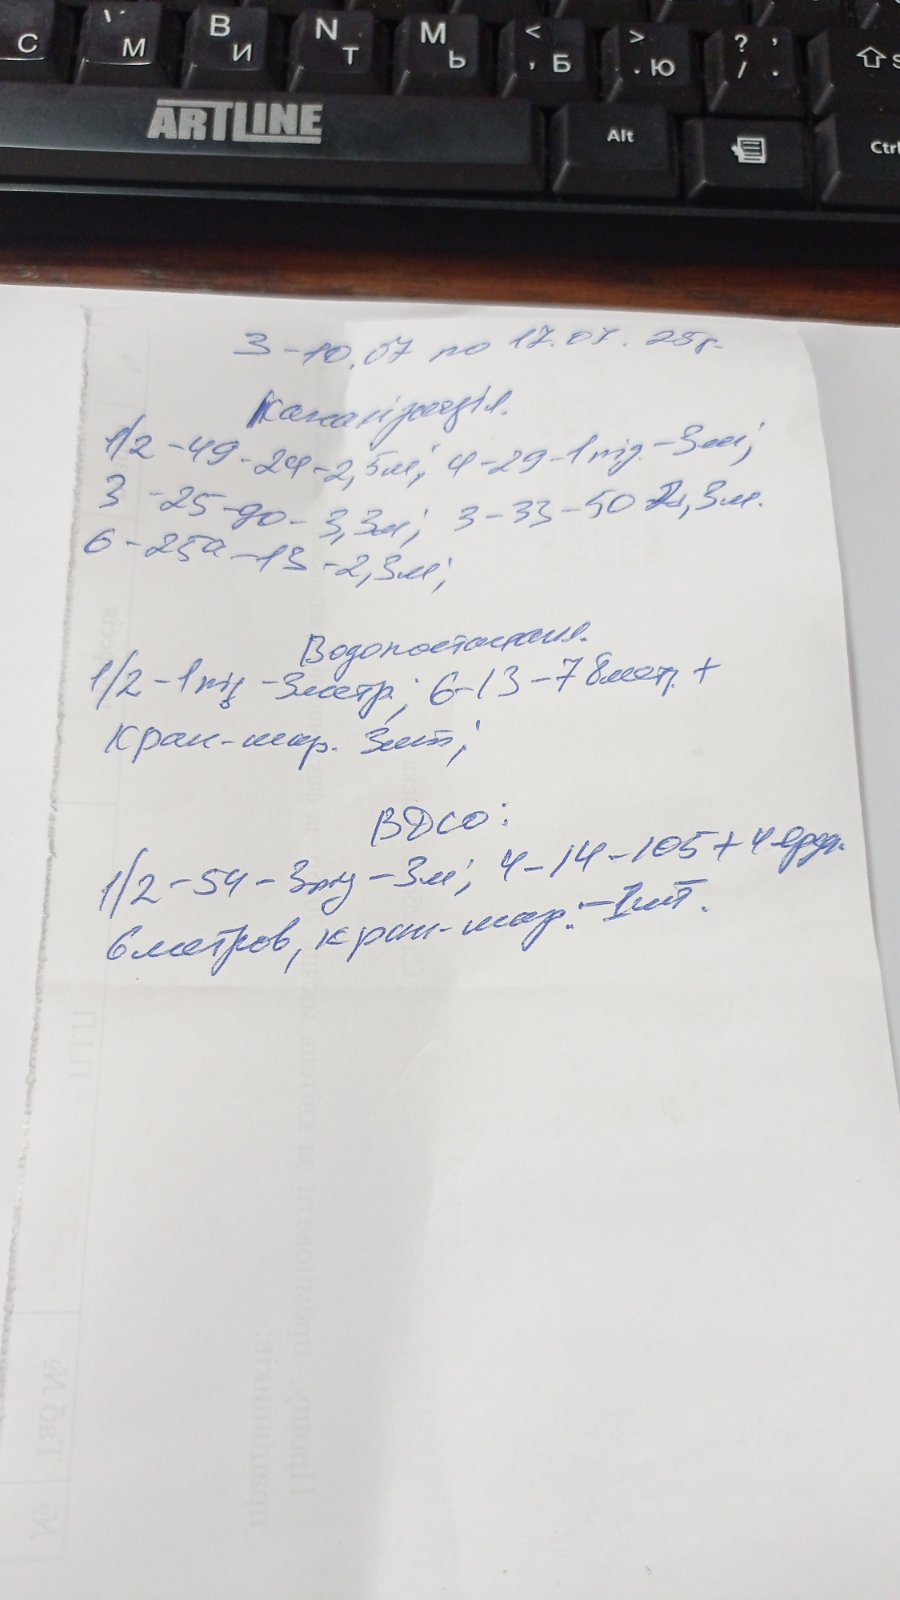 C М B И N Т M Ь < , Б > . Ю ? / .
ARTLINE Alt Ctrl
З -10.07 по 17.07. 25г.
Каналізація.
1/2 -49 -24 -2,5м; 4 -29 -1 під. -3м;
3 -25 -до - 3,3м; 3 -33 -50 2,3м.
6 -25а -13 -2,3м;
Водопостачання.
1/2 -1 під -3метр.; 6-13 -7 8метр. +
кран-шар. 3шт;
ВДСО:
1/2 -54 - 3під -3м; 4 -14 -105 + 4
6метров, кран-шар. -1шт.
П.І.П
Таб №
№